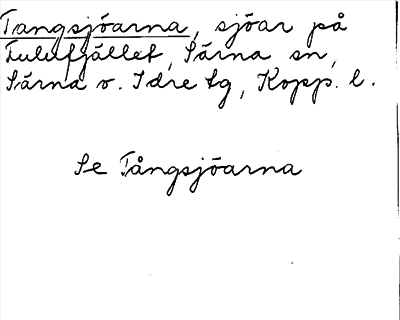 Tangsjöarna, sjöar på
Fulufjället, Särna sn,
Särna o. Idre tg, Kopp. l.
Se Tångsjöarna